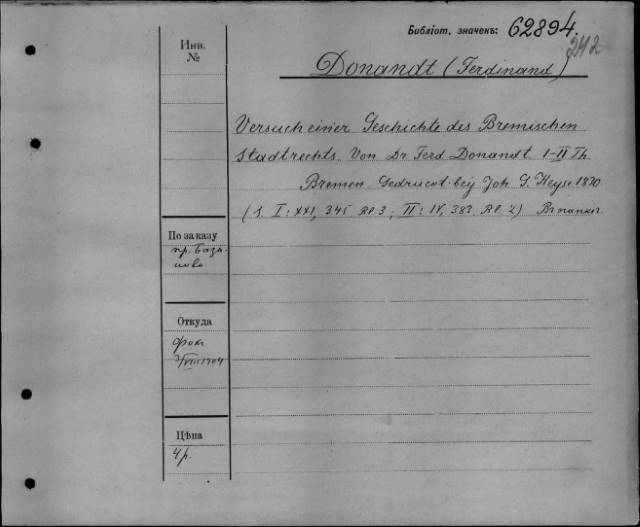 Библіот. значекъ: 62894.
Инв.
№
Donandt (Ferdinand)
Versuch einer Geschichte des Bremischen
Stadtrechts. Von Dr. Ferd. Donandt. I-II Th.
Bremen. Gedruckt bey Joh. G. Heyse 1830
(S. I: XXI, 345 Rf 3; II: IV, 383 Rf 2)
По заказу
пр. База-
нова
Откуда
Фок
3/VIII 1904
Цѣна
4 р.